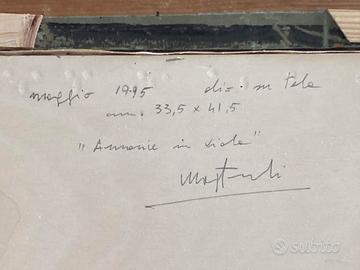 maggio 1995 olio su tela
cm. 33,5 x 41,5
"Armonie in viola"
subito